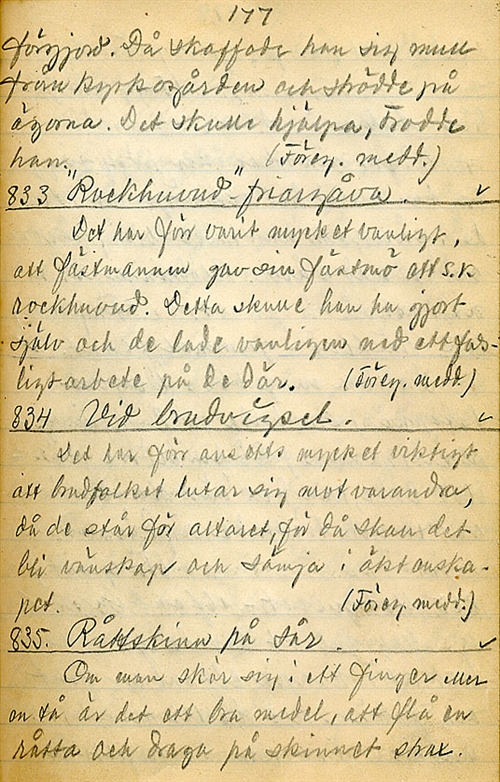 177
förgjord. Då skaffade han sig mull
från kyrkogården och strödde på
ägorna. Det skulle hjälpa, trodde
han. (Föreg. medd.)
833 "Rockhuvud"-friargåva.
Det har förr varit mycket vanligt,
att fästmannen gav sin fästmö ett s.k
rockhuvud. Detta skulle han ha gjort
själv och de lade vanligen ned ett fas-
ligt arbete på de där. (Föreg. medd.)
834 Vid brudvigsel.
Det har förr ansetts mycket viktigt
att brudfolket lutar sig mot varandra,
då de står för altaret, för då skall det
bli vänskap och sämja i äktenska-
pet. (Föreg. medd.)
835. Råttskinn på sår.
Om man skär sig i ett finger eller
en tå är det ett bra medel, att flå en
råtta och draga på skinnet strax.